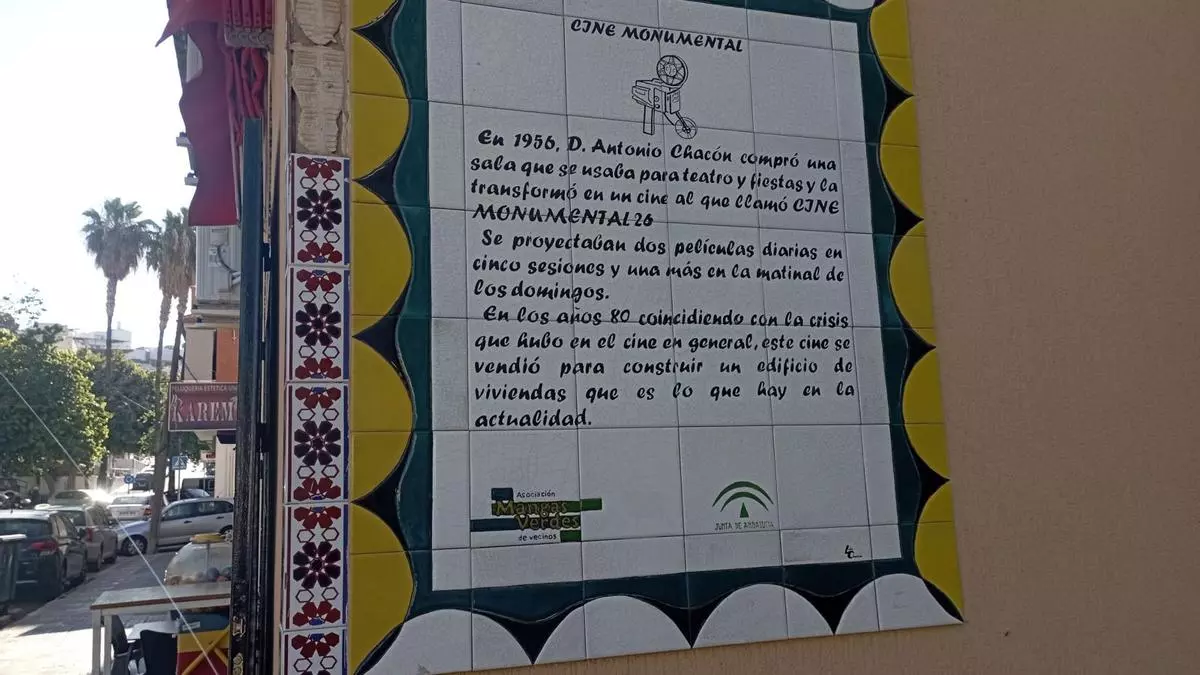 CINE MONUMENTAL
En 1956, D. Antonio Chacón compró una
sala que se usaba para teatro y fiestas y la
transformó en un cine al que llamó CINE
MONUMENTAL 26
Se proyectaban dos películas diarias en
cinco sesiones y una más en la matinal de
los domingos.
En los años 80 coincidiendo con la crisis
que hubo en el cine en general, este cine se
vendió para construir un edificio de
viviendas que es lo que hay en la
actualidad.
Asociación
Mangas
Verdes
de vecinos
JUNTA DE ANDALUCIA
PELUQUERIA ESTETICA
KARIM